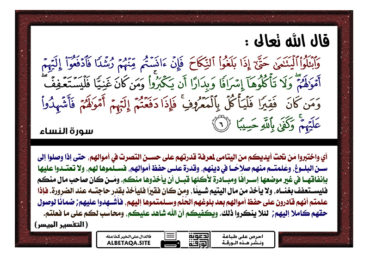 قال الله تعالى :
وَٱبْتَلُوا۟ ٱلْيَتَـٰمَىٰ حَتَّىٰٓ إِذَا بَلَغُوا۟ ٱلنِّكَاحَ فَإِنْ ءَانَسْتُم مِّنْهُمْ رُشْدًا فَٱدْفَعُوٓا۟ إِلَيْهِمْ
أَمْوَٰلَهُمْ ۖ وَلَا تَأْكُلُوهَآ إِسْرَافًا وَبِدَارًا أَن يَكْبَرُوا۟ ۚ وَمَن كَانَ غَنِيًّا فَلْيَسْتَعْفِفْ ۖ
وَمَن كَانَ فَقِيرًا فَلْيَأْكُلْ بِٱلْمَعْرُوفِ ۚ فَإِذَا دَفَعْتُمْ إِلَيْهِمْ أَمْوَٰلَهُمْ فَأَشْهِدُوا۟
عَلَيْهِمْ ۚ وَكَفَىٰ بِٱللَّهِ حَسِيبًا ٦
سورة النساء
أي واختبروا من تحت أيديكم من اليتامى لمعرفة قدرتهم على حسن التصرف في أموالهم, حتى إذا وصلوا إلى
سن البلوغ, وعلمتم منهم صلاحا في دينهم, وقدرة على حفظ أموالهم, فسلموها لهم, ولا تعتدوا عليها
بإنفاقها في غير موضعها إسرافا ومبادرة لأكلها قبل أن يأخذوها منكم. ومن كان صاحب مال منكم
فليستعفف بغناه, ولا يأخذ من مال اليتيم شيئا, ومن كان فقيرا فليأخذ بقدر حاجته عند الضرورة. فإذا
علمتم أنهم قادرون على حفظ أموالهم بعد بلوغهم الحلم وسلمتموها إليهم, فأشهدوا عليهم; ضمانا لوصول
حقهم كاملا إليهم; لئلا ينكروا ذلك. ويكفيكم أن الله شاهد عليكم, ومحاسب لكم على ما فعلتم.
(التفسير الميسر)
احرص على طباعة
ونشر هذه الورقة
ALBETAQA.SITE